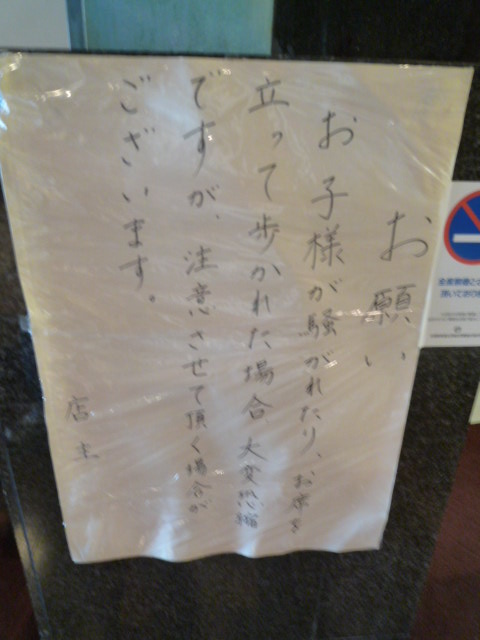 お願い
お子様が騒がれたり、お席を
立って歩かれた場合、大変恐縮
ですが、注意させて頂く場合が
ございます。
店主